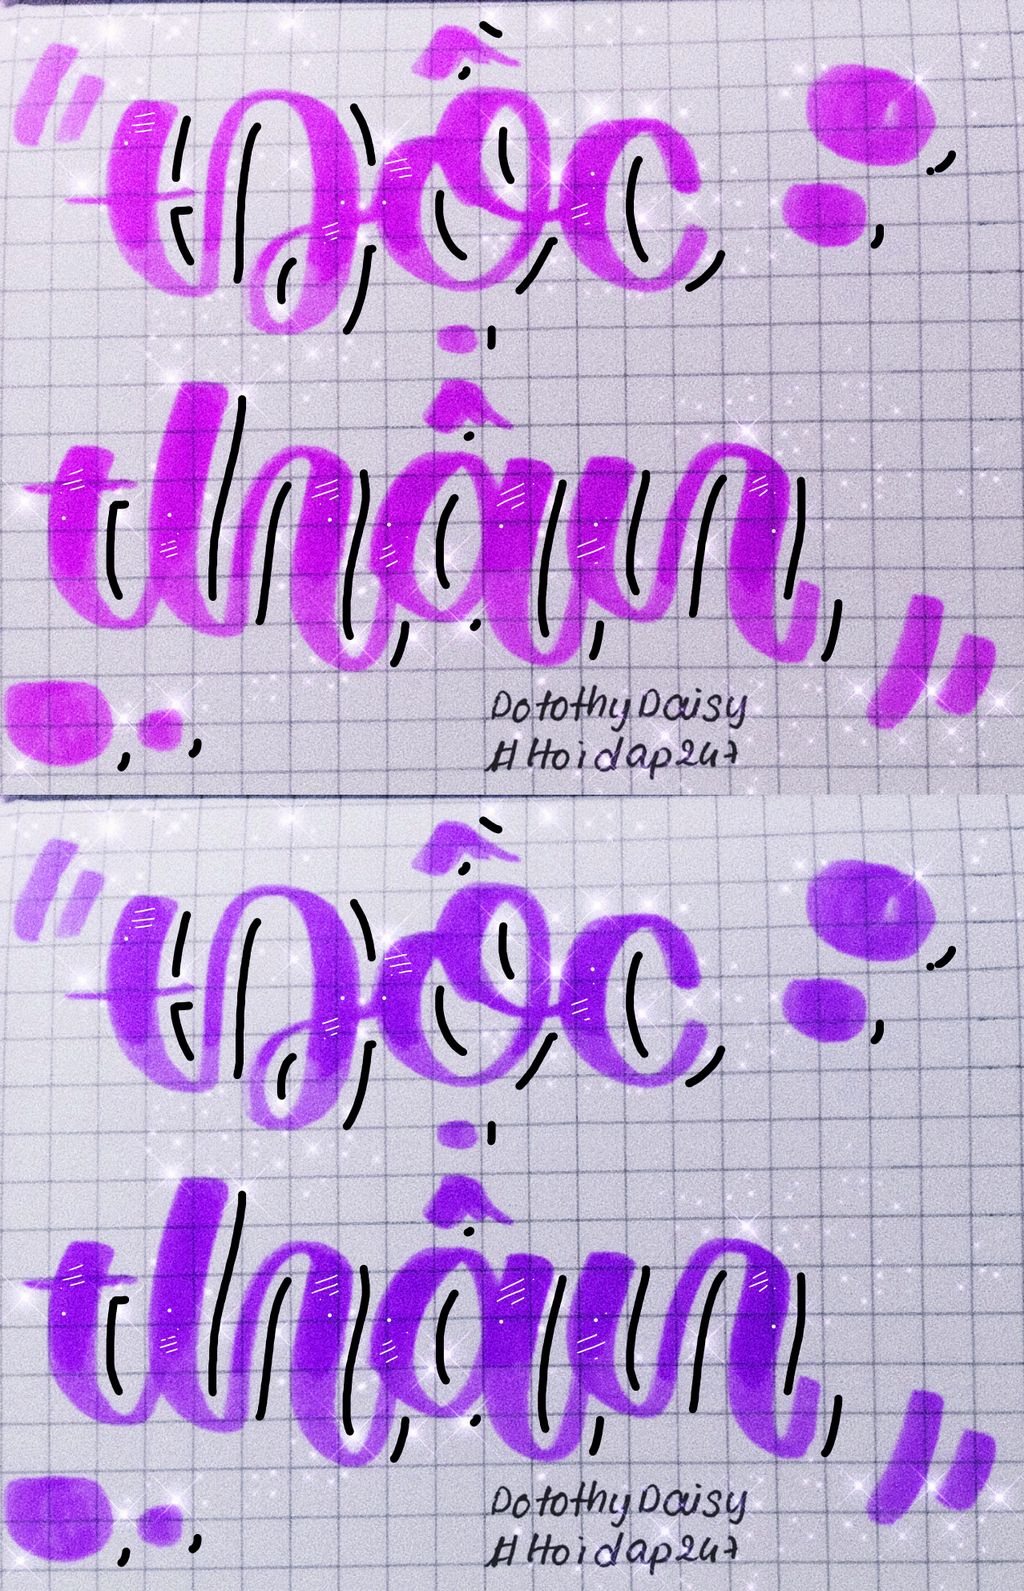 Độc
thân
Dotothy Daisy
#Hoidap247
Độc
thân
Dotothy Daisy
#Hoidap247